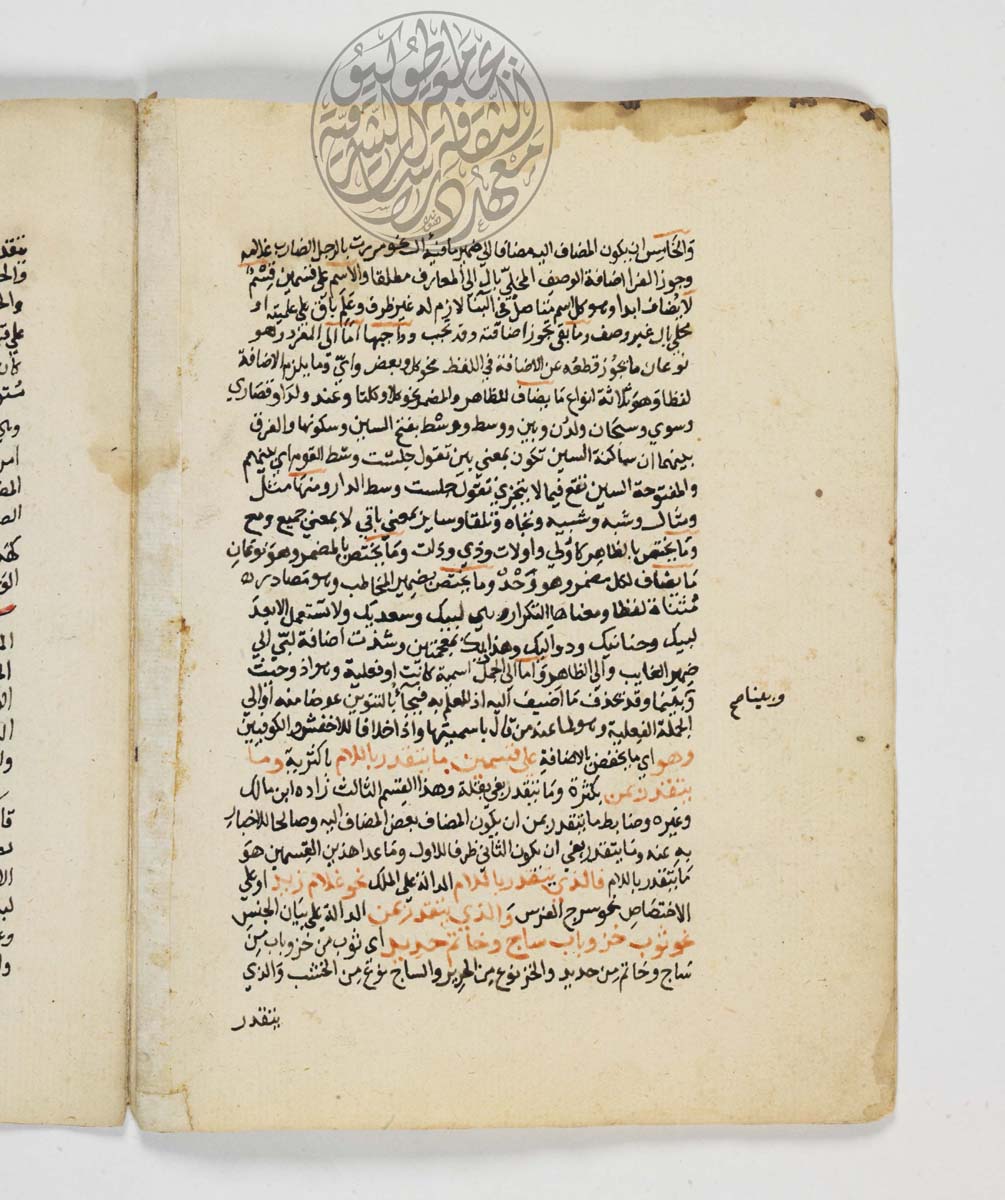 والخامس ان يكون المضاف اليه مضافا الي ضمير ما فيه ال نحو مررت بالرجل الضارب غلامه
وجوز الفرا اضافة الوصف المحلي بال الي المعارف مطلقا والاسم علي قسمين قسم
لا يضاف ابدا وهو كل اسم متاصل في البنا لازم له غير ظرف وعلم باق علي علميته او
محلي بال غير وصف وما بقي تجوز اضافته وقد تجب وواجبها اما الي المفرد وهو
نوعان ما يجوز قطعه عن الاضافة في اللفظ نحو كل وبعض واي وما يلزم الاضافة
لفظا وهو ثلاثة انواع ما يضاف للظاهر والمضمر نحو كلا وكلتا وعند ولدا وقصاري
وسوي وسبحان ولدن وبين ووسط ووسط بفتح السين وسكونها والفرق
بينهما ان ساكنة السين تكون بمعني بين تقول جلست وسط القوم اي بينهم
والمفتوحة السين تقع فيما لا يتجزي تقول جلست وسط الدار ومنها مثل
ومثال وشبه وشبيه وتجاه وتلقا وساير بمعني باقي لا بمعني جميع ومع
وما يختص بالظاهر كاولي واولات وذي وذات وما يختص بالمضمر وهو نوعان
ما يضاف لكل مضمر وهو وحد وما يختص بضمير المخاطب وهو مصادر
مثناة لفظا ومعناها التكرار وهي لبيك وسعديك ولا تستعمل الا بعد
لبيك وحنانيك ودواليك وهذاذيك بمعجمتين وشذت اضافة لبي الي
ضمير الغايب والي الظاهر واما الي الجمل اسمية كانت او فعلية وهو اذ وحيث
وبينما وقد يحذف ما اضيف اليه اذ للعلم به فيجا بالتنوين عوضا منه او الي
وبينا صح
الجملة الفعلية وهو لما عند من قال باسميتها واذا خلافا للاخفش والكوفيين
وهو اي ما يخفض الاضافة علي قسمين ما يتقدر باللام باكثرية وما
يتقدر بمن بكثرة وما يتقدر بفي بقلة وهذا القسم الثالث زاده ابن مالك
وغيره وضابط ما يتقدر بمن ان يكون المضاف بعض المضاف اليه وصالحا للاخبار
به عنه وما يتقدر بفي ان يكون الثاني ظرفا للاول وما عدا هذين القسمين هو
ما يتقدر باللام فالذي يتقدر باللام الدالة علي الملك نحو غلام زيد او علي
الاختصاص نحو سرج الفرس والذي يتقدر بمن الدالة علي بيان الجنس
نحو ثوب خز وباب ساج وخاتم حديد اي ثوب من خز وباب من
ساج وخاتم من حديد والخز نوع من الحرير والساج نوع من الخشب والذي
يتقدر